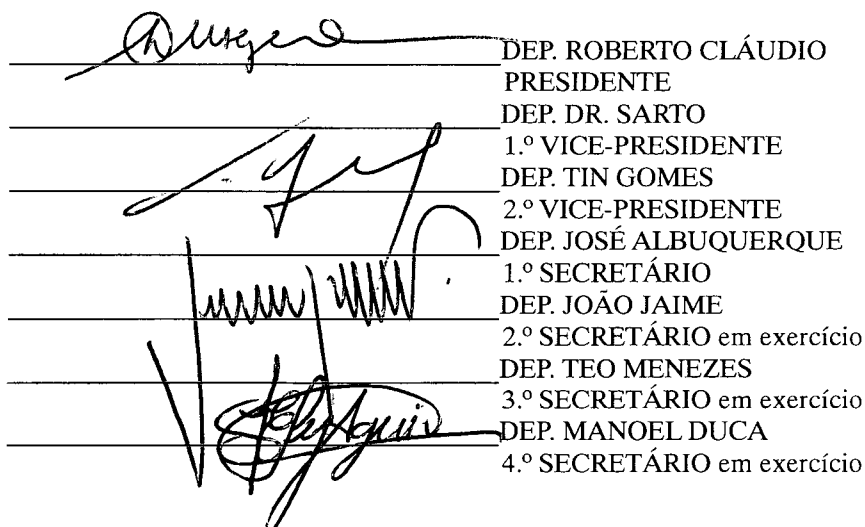 DEP. ROBERTO CLÁUDIO
PRESIDENTE
DEP. DR. SARTO
1.º VICE-PRESIDENTE
DEP. TIN GOMES
2.º VICE-PRESIDENTE
DEP. JOSÉ ALBUQUERQUE
1.º SECRETÁRIO
DEP. JOÃO JAIME
2.º SECRETÁRIO em exercício
DEP. TEO MENEZES
3.º SECRETÁRIO em exercício
DEP. MANOEL DUCA
4.º SECRETÁRIO em exercício